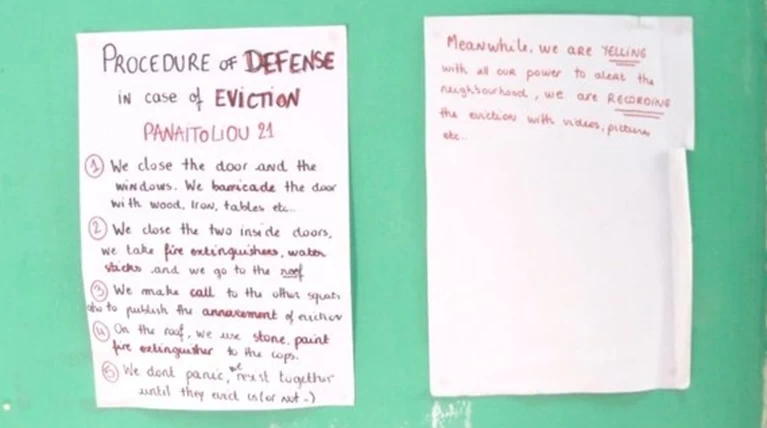 PROCEDURE OF DEFENSE
IN CASE OF EVICTION
PANAITOLIOU 21
① We close the door and the
windows. We barricade the door
with wood, Iron, tables etc..
② We close the two inside doors,
we take fire extinguishers, water
sticks and we go to the roof
③ We make call to the other squats
also to publish the annavement of eviction
④ On the roof, we use stone, paint
fire extinguisher to the cops.
⑤ We dont panic, we resist together
until they evict us (or not -)
Meanwhile, we are YELLING
with all our power to aleat the
neighbourhood, we are RECORDING
the eviction with videos, pictures
etc..